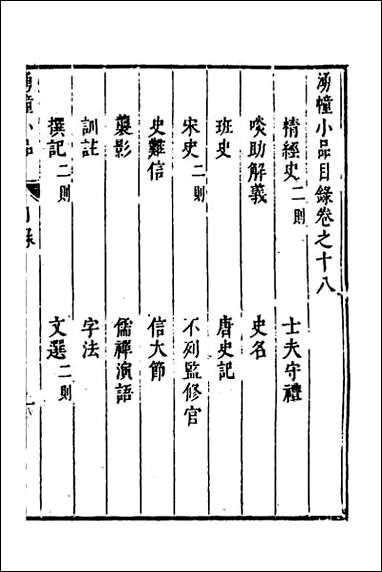 湧幢小品目錄卷之十八
情經史二則 士夫守禮
啖助解義 史名
班史 唐史記
宋史二則 不列監修官
史難信 信大節
襲影 儒禪演語
訓註 字法
撰記二則 文選二則
湧幢小品 目錄